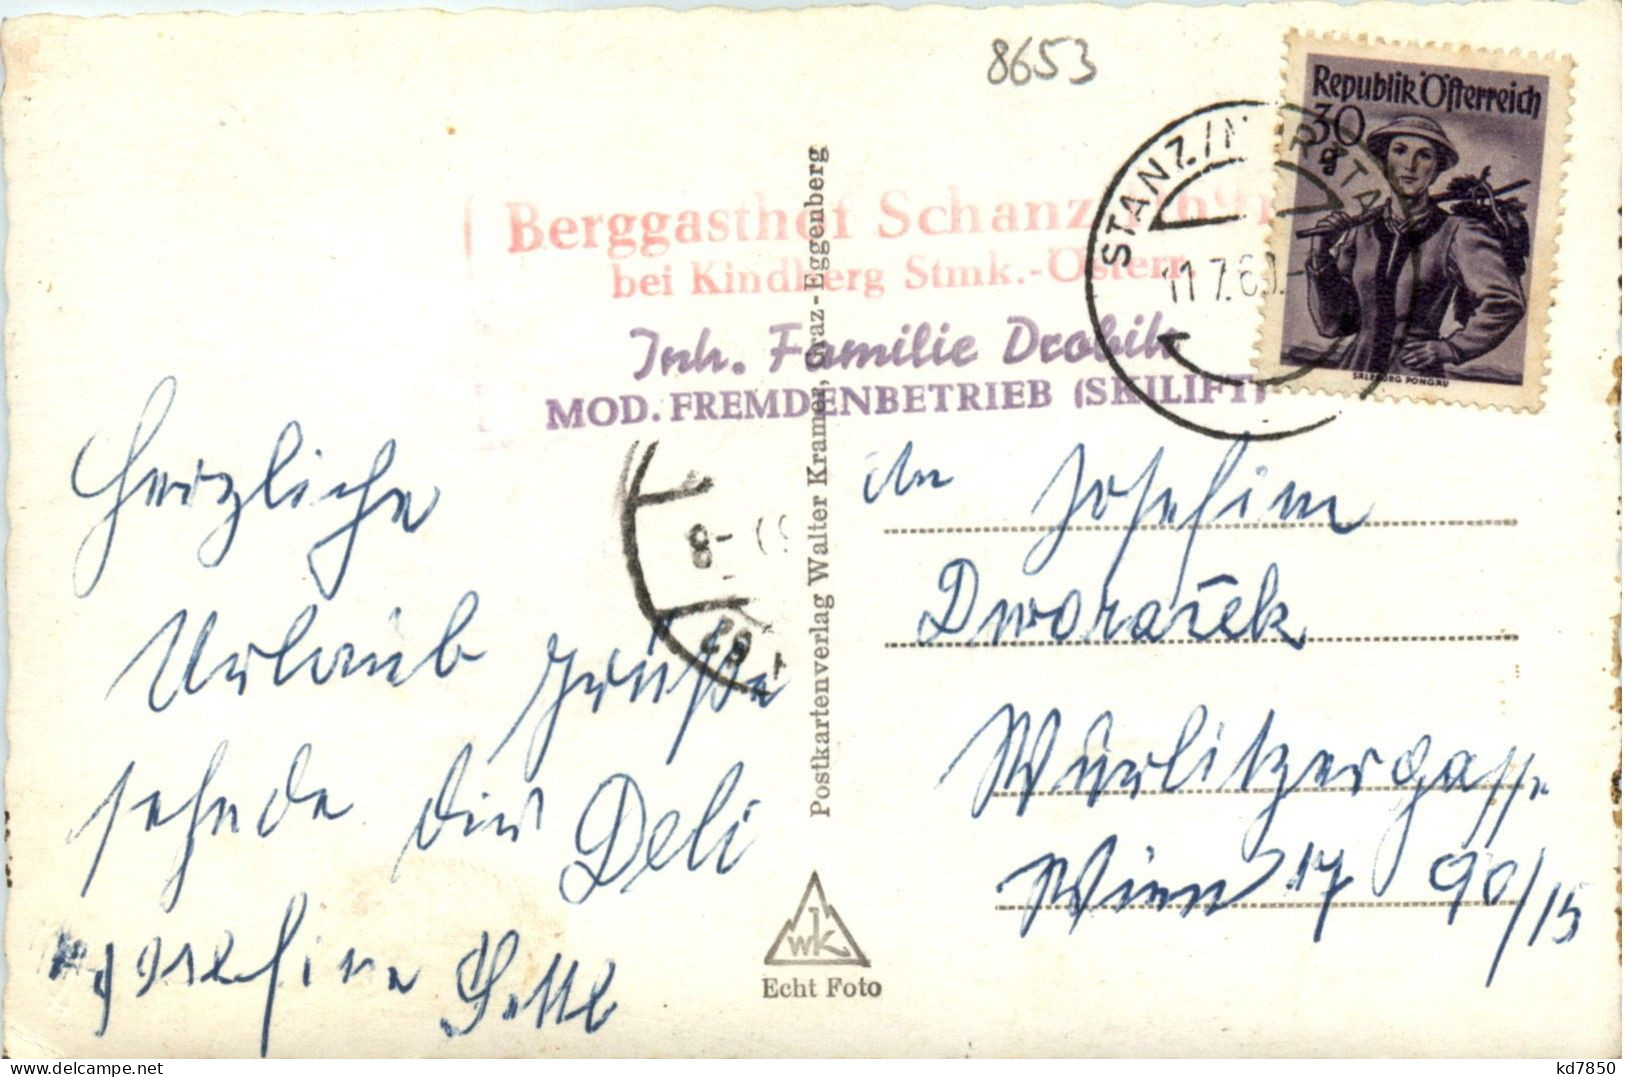 8653
Republik Österreich
30
g
SALZBURG PONGAU
STANZ/MÜRZTAL
11.7.60.-
Berggasthof Schanz
bei Kindberg Stmk.-Österr.
Inh. Familie Drobilo
MOD. FREMDENBETRIEB (SKILIFT)
8-
Postkartenverlag Walter Kramer, Graz-Eggenberg
Herzliche
Urlaub grüße
sende dir Deli
Josefine
An Josefine
Dworaček
Würlitzergasse
Wien 17 90/15
wk
Echt Foto
delcampe.net
kd7850